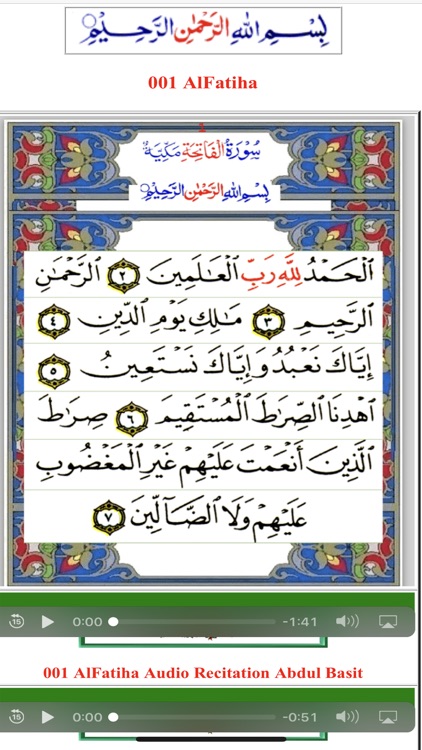 بِسْمِ اللهِ الرَّحْمٰنِ الرَّحِيْمِ
001 AlFatiha
سُوْرَةُ الْفَاتِحَةِ مَكِّيَّةٌ
بِسْمِ اللهِ الرَّحْمٰنِ الرَّحِيْمِ
الْحَمْدُ لِلَّهِ رَبِّ الْعَالَمِينَ ٢ الرَّحْمَٰنِ
الرَّحِيمِ ٣ مَٰلِكِ يَوْمِ الدِّينِ ٤
إِيَّاكَ نَعْبُدُ وَإِيَّاكَ نَسْتَعِينُ ٥
اهْدِنَا الصِّرَاطَ الْمُسْتَقِيمَ ٦ صِرَاطَ
الَّذِينَ أَنْعَمْتَ عَلَيْهِمْ غَيْرِ الْمَغْضُوبِ
عَلَيْهِمْ وَلَا الضَّآلِّينَ ٧
15 0:00 -1:41
001 AlFatiha Audio Recitation Abdul Basit
15 0:00 -0:51